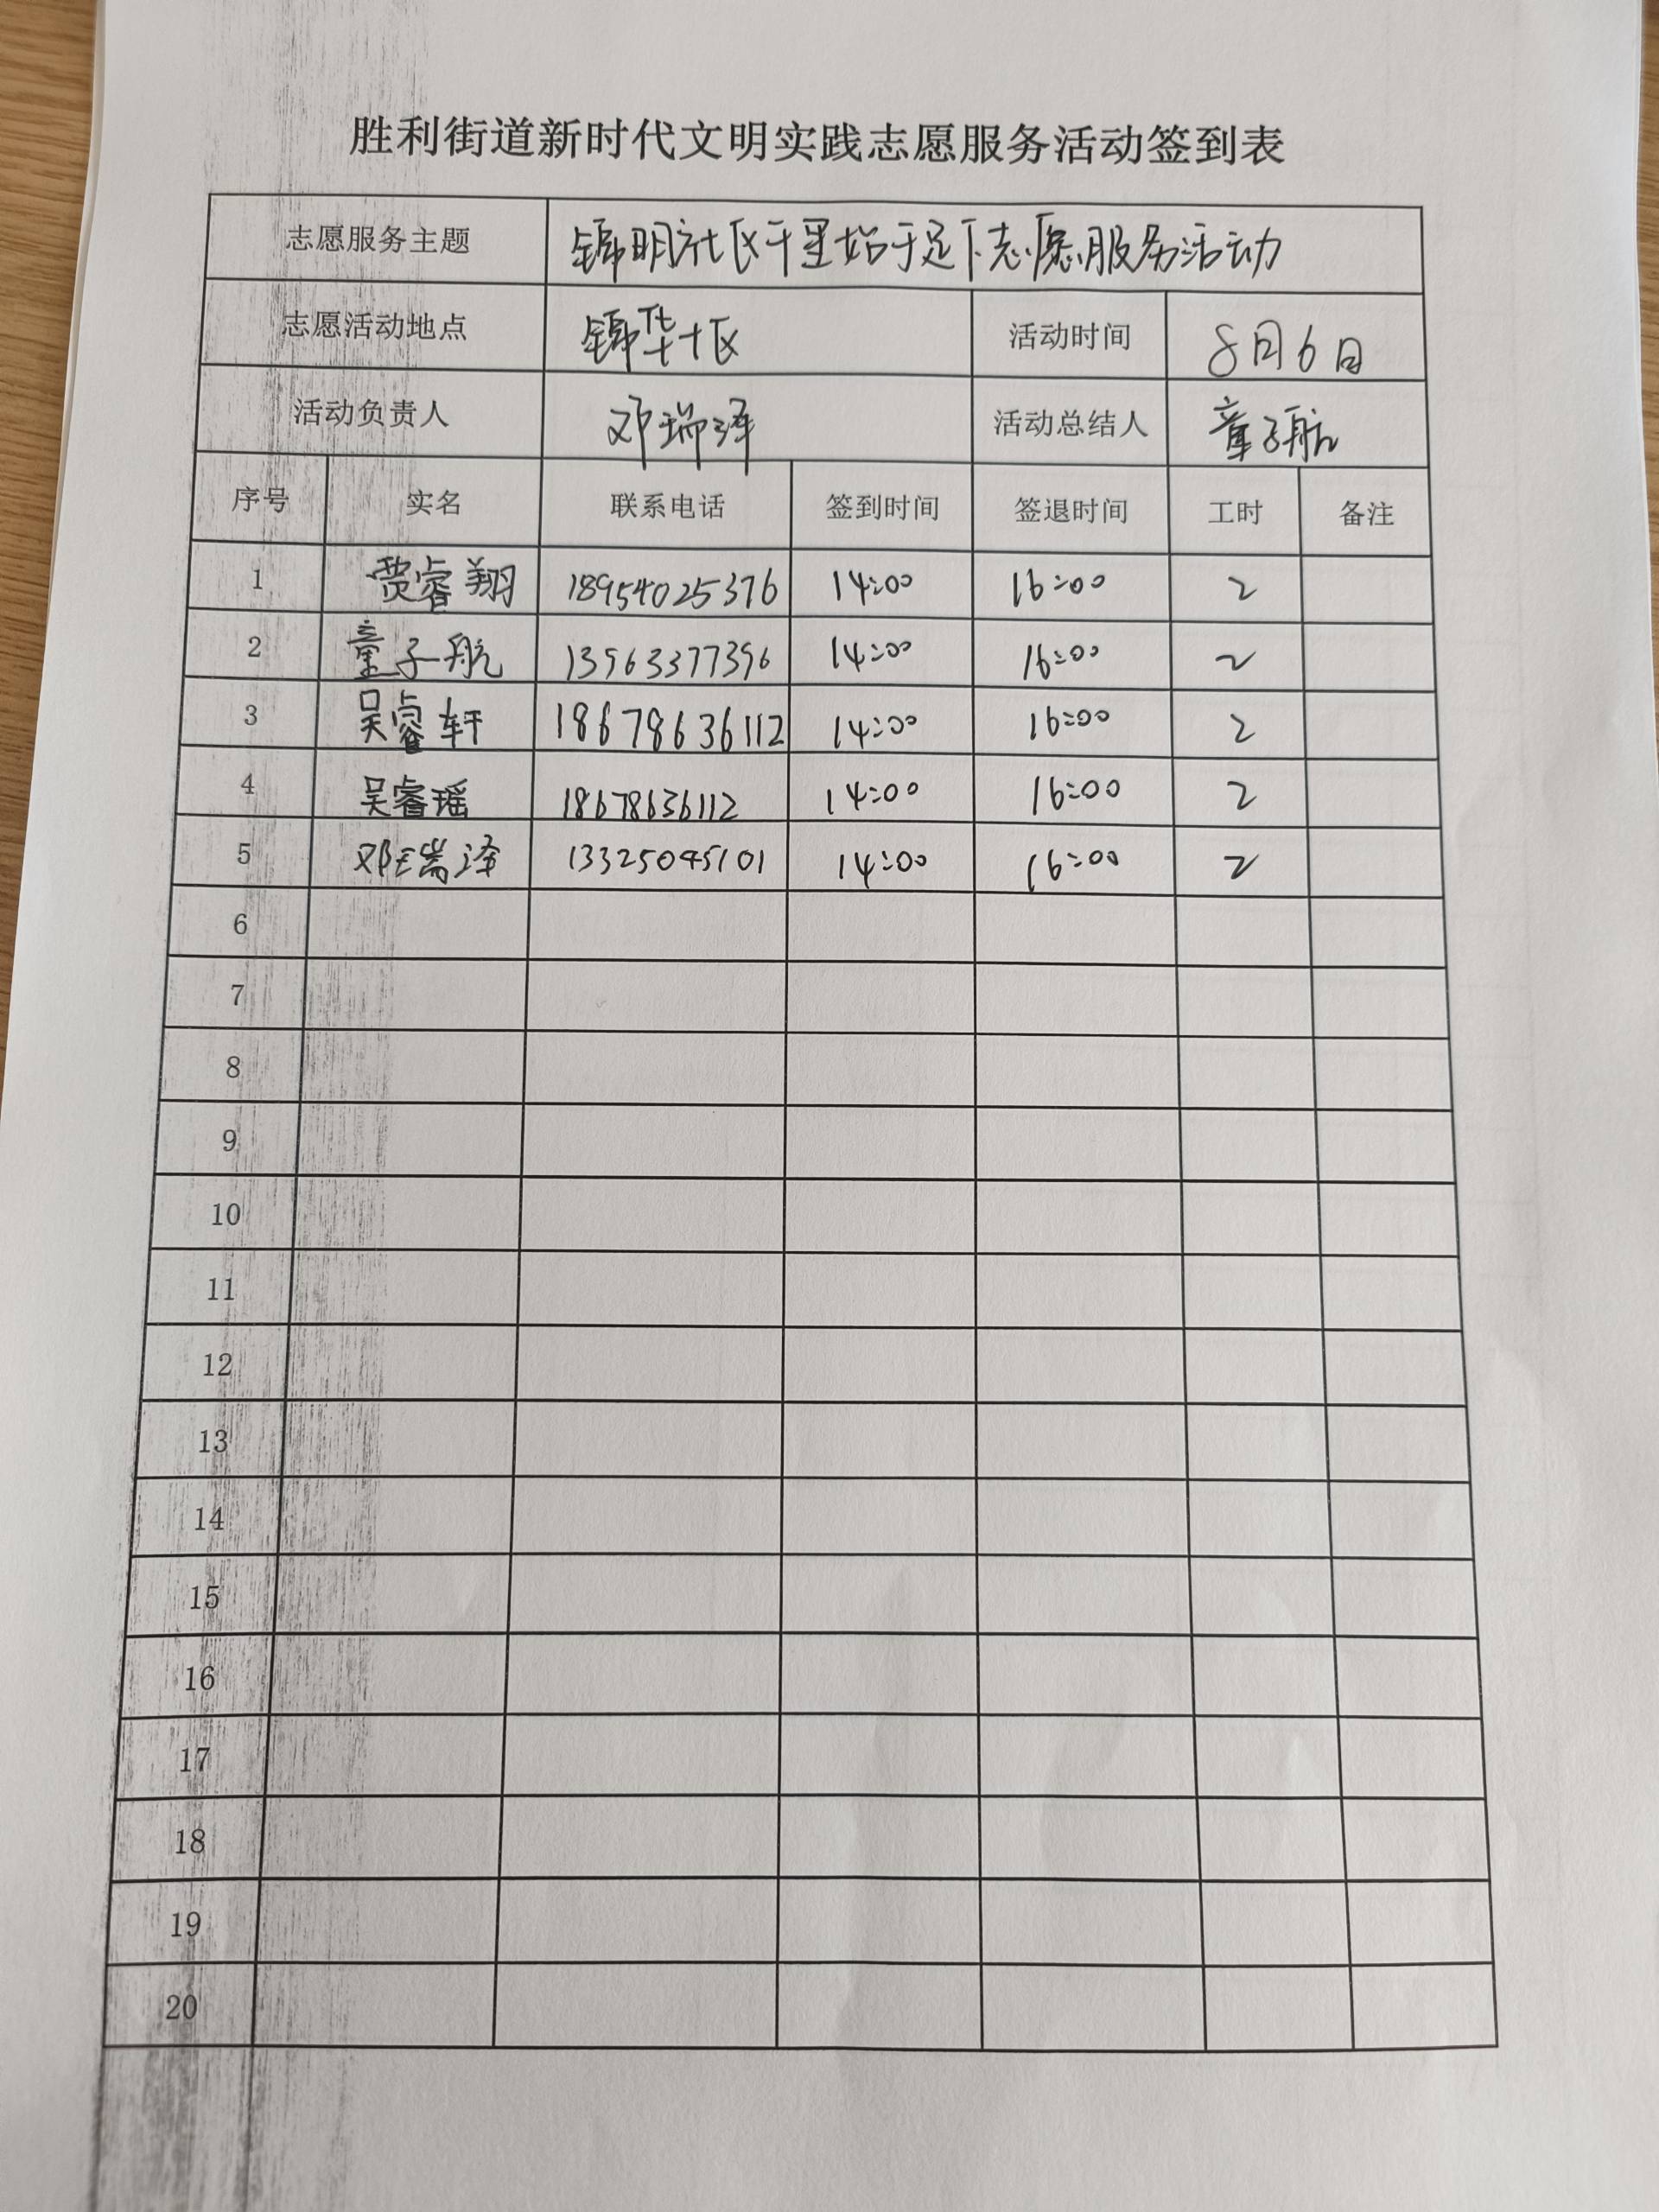 胜利街道新时代文明实践志愿服务活动签到表
志愿服务主题 锦明社区千里始于足下志愿服务活动
志愿活动地点 锦华十区 活动时间 8月6日
活动负责人 邓瑞泽 活动总结人 童子航
序号 实名 联系电话 签到时间 签退时间 工时 备注
1 贾睿翔 18954025376 14:00 16:00 2
2 童子航 13963377396 14:00 16:00 2
3 吴睿轩 18678636112 14:00 16:00 2
4 吴睿瑶 18678636112 14:00 16:00 2
5 邓瑞泽 13325045101 14:00 16:00 2
6
7
8
9
10
11
12
13
14
15
16
17
18
19
20